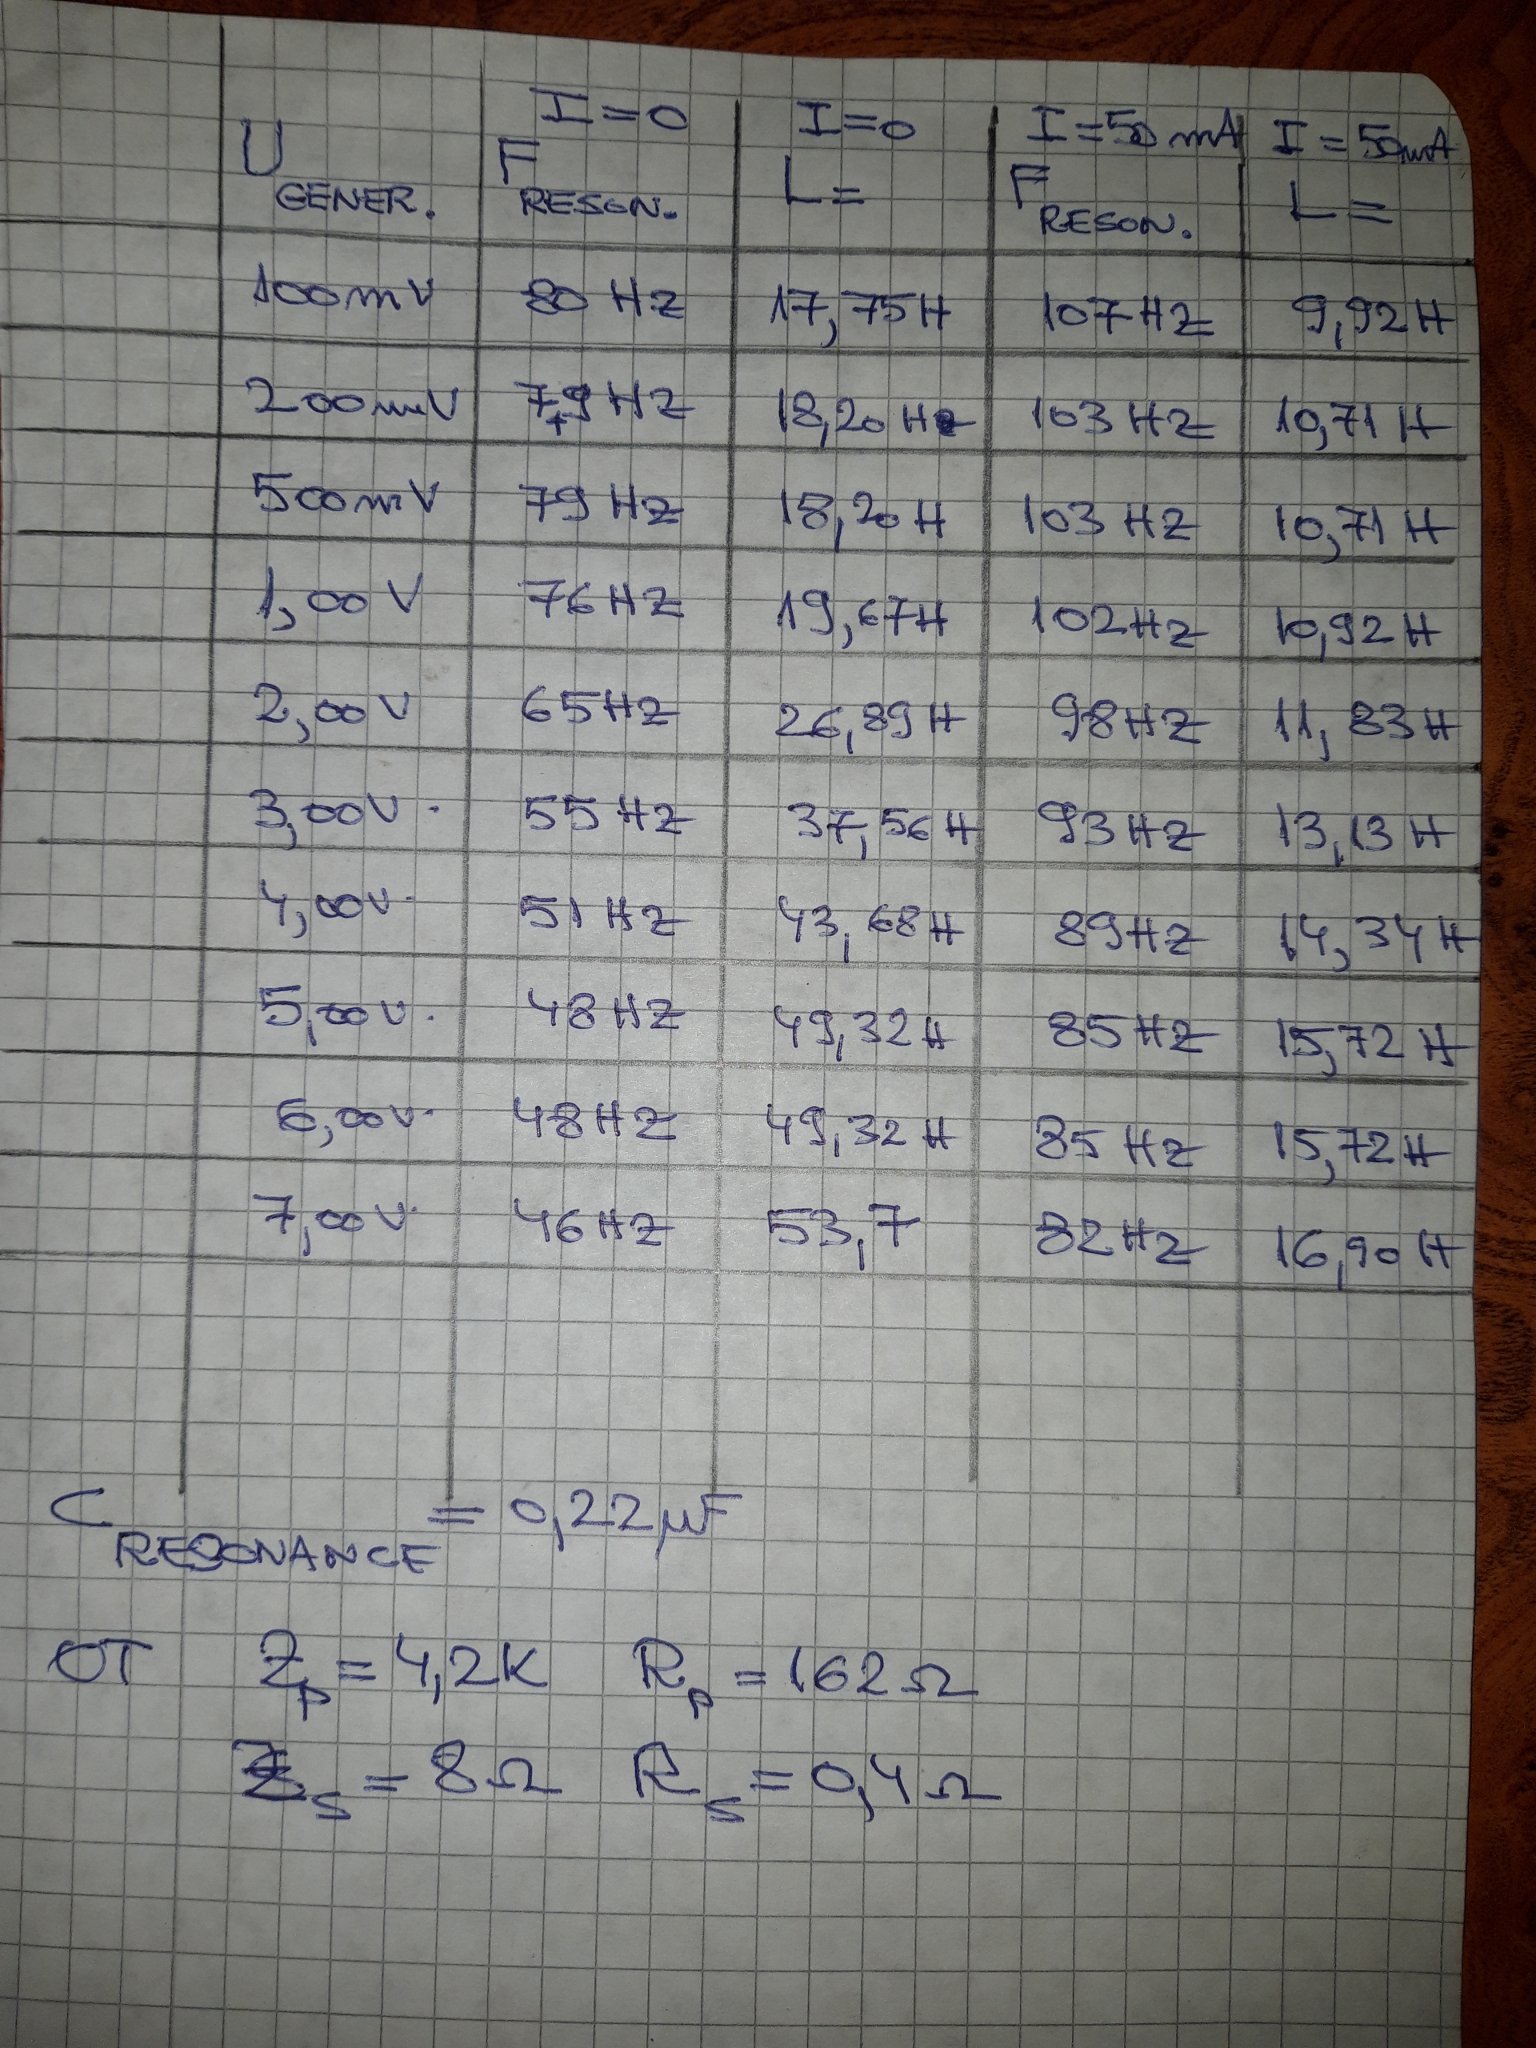 I=0 I=0 I=50mA I=50mA
U GENER. F RESON. L= F RESON. L=
100mV 80 Hz 17,75H 107Hz 9,92H
200mV 79Hz 18,20H 103Hz 10,71H
500mV 79Hz 18,20H 103Hz 10,71H
1,00V 76Hz 19,67H 102Hz 10,92H
2,00V 65Hz 26,89H 98Hz 11,83H
3,00V. 55Hz 37,56H 93Hz 13,13H
4,00V. 51Hz 43,68H 89Hz 14,34H
5,00V. 48Hz 49,32H 85Hz 15,72H
6,00V. 48Hz 49,32H 85Hz 15,72H
7,00V. 46Hz 53,7 82Hz 16,90H
C RESONANCE = 0,22µF
OT Zp=4,2K Rp=162Ω
Zs=8Ω Rs=0,4Ω